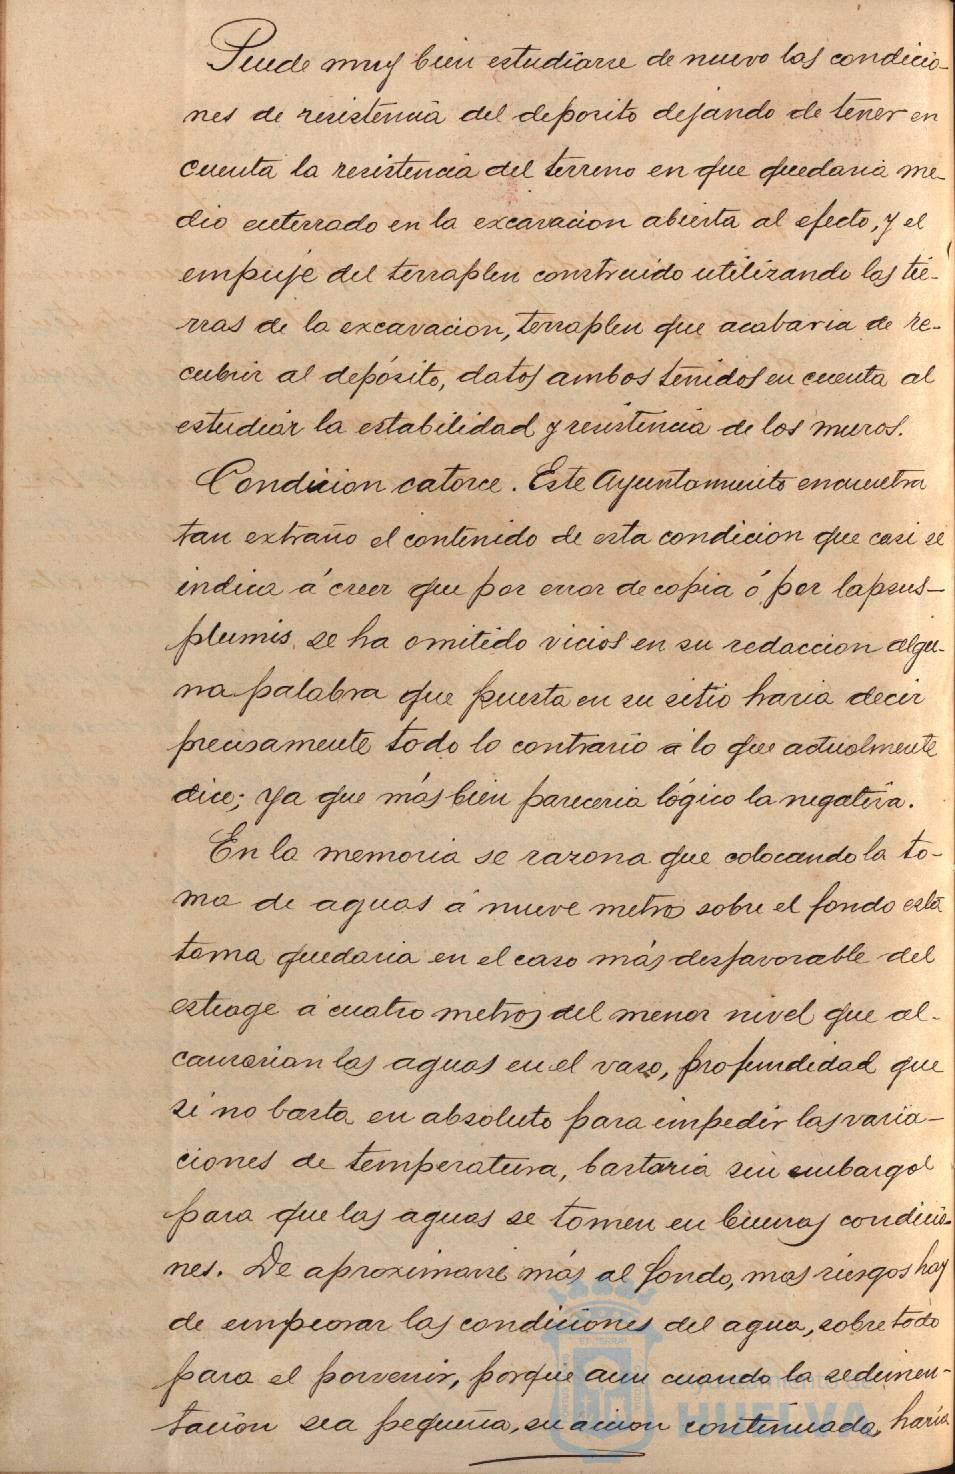 Puede muy bien estudiarse de nuevo las condicio-
nes de resistencia del deposito dejando de tener en
cuenta la resistencia del terreno en que quedaria me-
dio enterrado en la excavacion abierta al efecto, y el
empuje del terraplen construido utilizando las tie-
rras de la excavacion, terraplen que acabaria de re-
cubrir al depósito, datos ambos tenidos en cuenta al
estudiar la estabilidad y resistencia de los muros.
Condicion catorce. Este Ayuntamiento encuentra
tan extraño el contenido de esta condicion que casi se
indica á creer que por error de copia ó por lapsus-
plumis se ha omitido vicios en su redaccion algu-
na palabra que puesta en su sitio haria decir
precisamente todo lo contrario a lo que actualmente
dice; ya que más bien pareceria lógico la negativa.
En la memoria se razona que colocando la to-
ma de aguas á nueve metros sobre el fondo esta
toma quedaria en el caso más desfavorable del
estiage á cuatro metros del menor nivel que al-
canzarian las aguas en el vaso, profundidad que
si no basta en absoluto para impedir las varia-
ciones de temperatura, bastaria sin embargo
para que las aguas se tomen en buenas condicio-
nes. De aproximarse más al fondo, mas riesgos hay
de empeorar las condiciones del agua, sobre todo
para el porvenir, porque aun cuando la sedimen-
tación sea pequeña, su acion continuada, haria
Ayuntamiento de
HUELVA